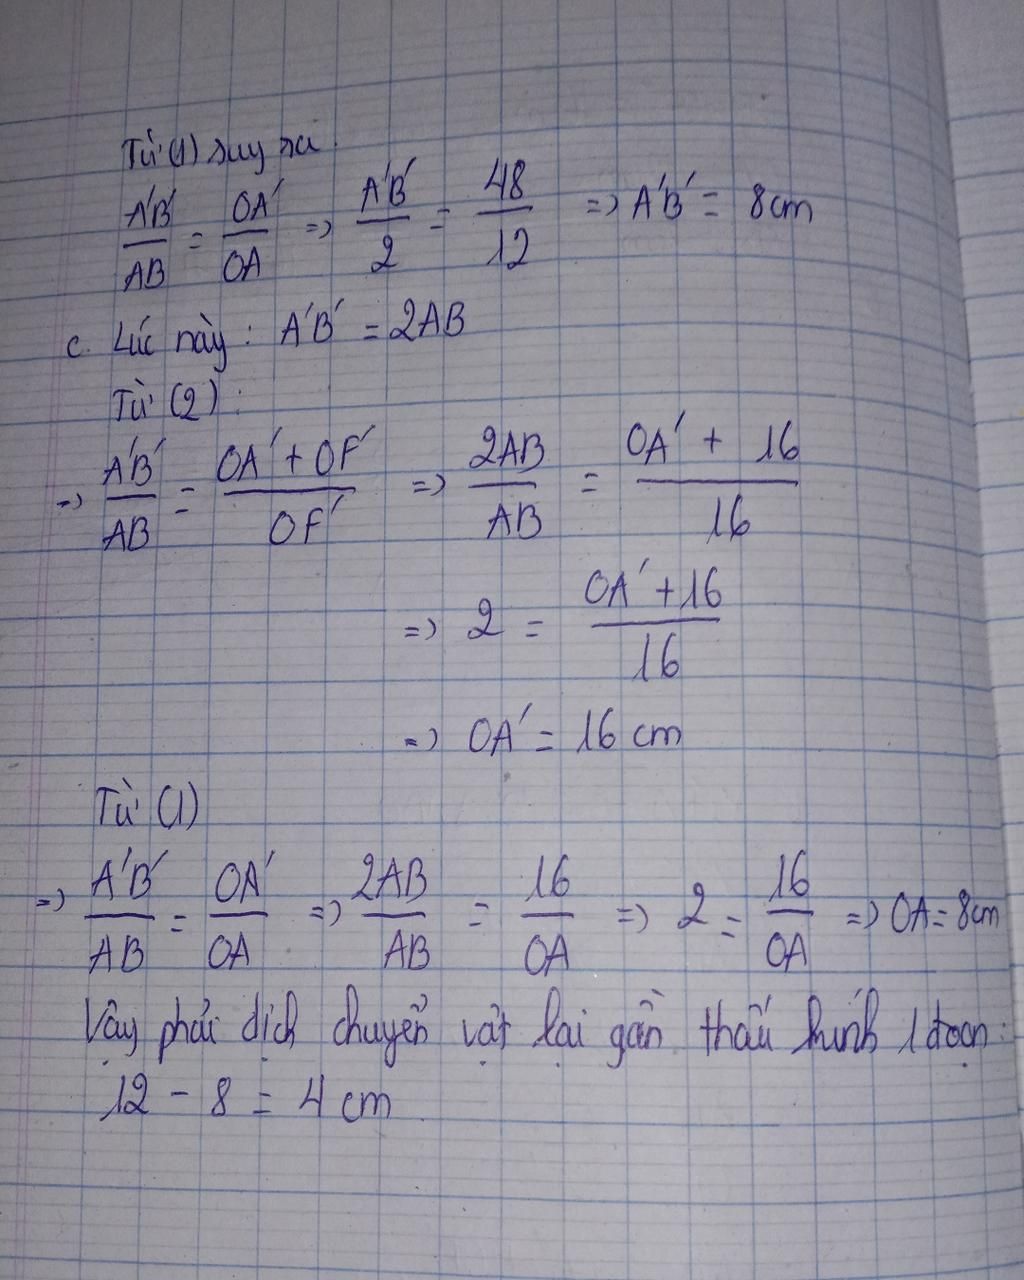 Từ (1) suy ra
A'B'/AB = OA'/OA => A'B'/2 = 48/12 => A'B' = 8cm
c. Lúc này : A'B' = 2AB
Từ (2) :
=> A'B'/AB = OA' + OF'/OF' => 2AB/AB = OA' + 16/16
=> 2 = OA' + 16/16
=> OA' = 16 cm
Từ (1)
=> A'B'/AB = OA'/OA => 2AB/AB = 16/OA => 2 = 16/OA => OA = 8cm
Vậy phải dịch chuyển vật lại gần thấu kính 1 đoạn :
12 - 8 = 4 cm